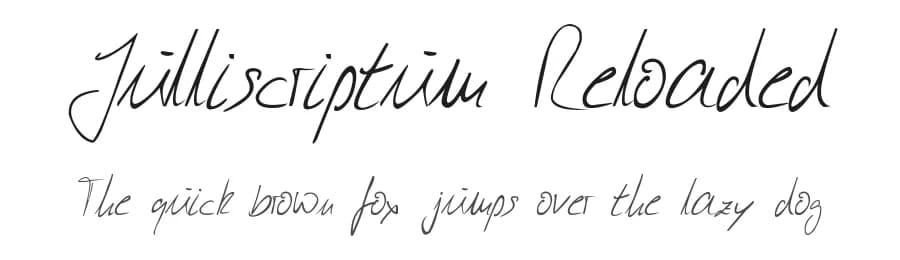 Julliscriptum Reloaded
The quick brown fox jumps over the lazy dog